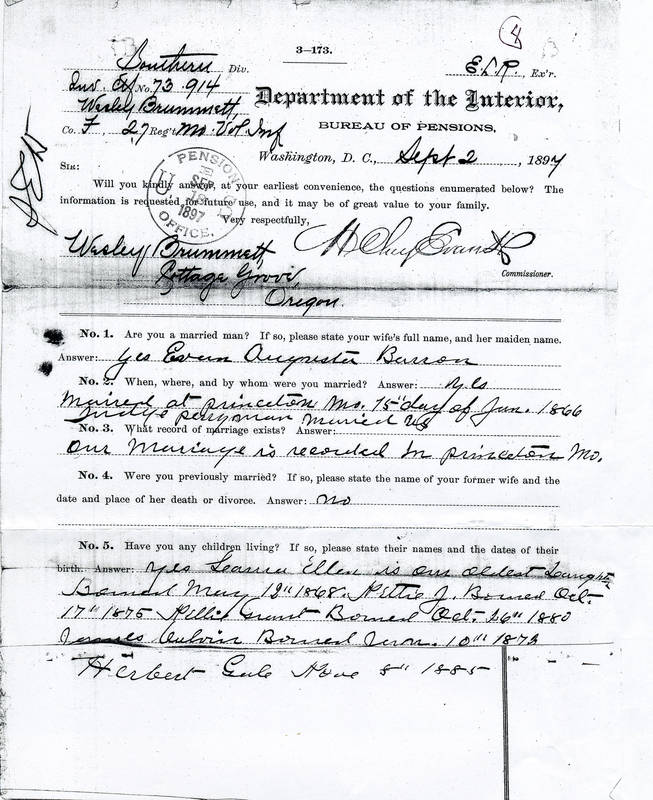 4
3—173.
Southern Div.
E.L.R., Ex'r.
Inv. Ctf No. 73 914
Wesley Brummett,
Department of the Interior,
Co. F, 27 Reg't Mo. Vol. Inf
BUREAU OF PENSIONS,
Washington, D. C., Sept 2, 1897
SIR:
U. S. PENSION OFFICE.
SEP
1897
Will you kindly answer, at your earliest convenience, the questions enumerated below? The
information is requested for future use, and it may be of great value to your family.
Very respectfully,
Wesley Brummett
H Clay Evans
Cottage Grove,
Commissioner.
Oregon.
No. 1. Are you a married man? If so, please state your wife's full name, and her maiden name.
Answer: yes Augusta Barron
No. 2. When, where, and by whom were you married? Answer: yes
Maired at princeton Mo. 15" day of Jan. 1866
Judge maried us
No. 3. What record of marriage exists? Answer:
Our Mariage is recorded In princeton Mo.
No. 4. Were you previously married? If so, please state the name of your former wife and the
date and place of her death or divorce. Answer: no
No. 5. Have you any children living? If so, please state their names and the dates of their
birth. Answer: yes Ellen is our oldest Daughter
Borned May 12" 1868. Nettie J. Borned Oct.
17" 1875 Grant Borned Oct. 26" 1880
James Borned 10" 1873
Herbert Gale Nove 8" 1885